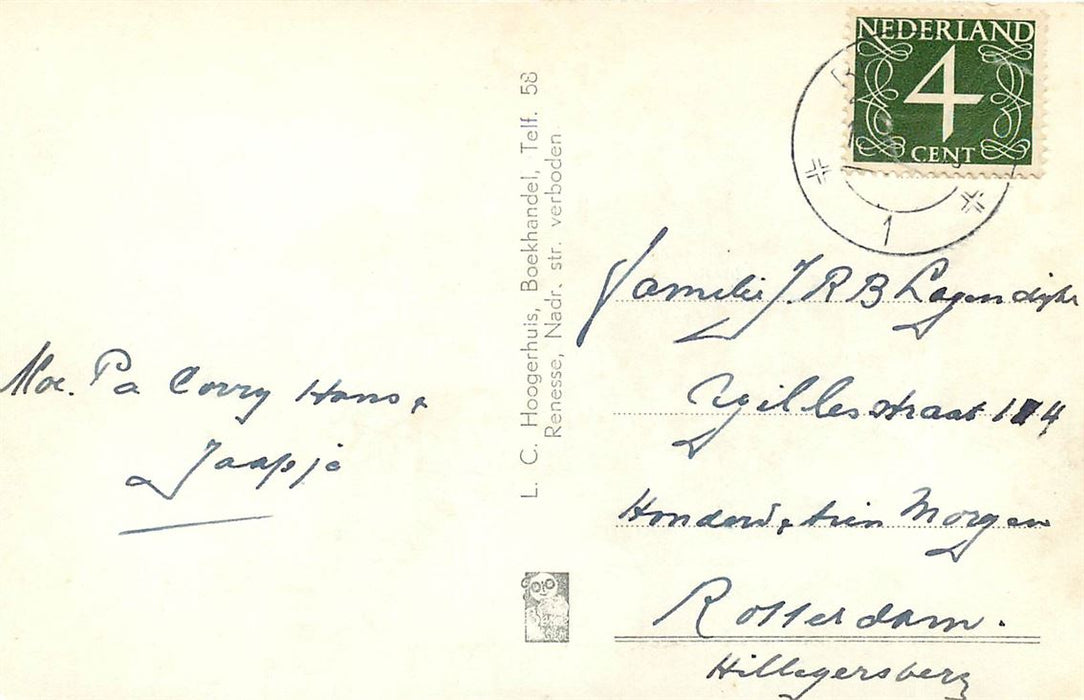 Moe. Pa Corry Hans &
Jaapje
L. C. Hoogerhuis, Boekhandel, Telf. 58
Renesse, Nadr. str. verboden
NEDERLAND
4
CENT
1
Familie J. R B Lagendijk
straat 114
Honderd & tien Morgen
Rotterdam.
Hillegersberg